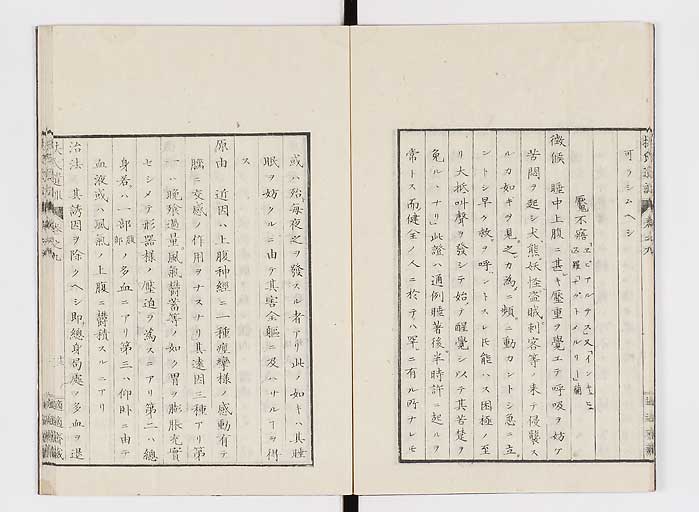 可ラシムヘシ
魘不寤
徴候 睡中上腹ニ甚キ壓重ヲ覺エテ呼吸ヲ妨ケ
苦悶ヲ起シ犬熊妖怪盗賊刺客等ノ来テ侵襲ス
ルカ如キヲ見之カ為ニ頻ニ動カントシ急ニ立
ントシ早ク救ヲ呼ントスレ𪜈能ハス困極ノ至
リ大抵叫聲ヲ發シテ始テ醒覺シ以テ其苦楚ヲ
免ルヽナリ此證ハ通例睡著後半時許ニ起ルヲ
常トス而健全ノ人ニ於テハ罕ニ有ル所ナレ𪜈
或ハ殆毎夜之ヲ發スル者アリ此ノ如キハ其睡
眠ヲ妨クルニ由テ其害全軀ニ及ハサルヿヲ得
ス
原由 近因ハ上腹神經ニ一種痙攣様ノ感動有テ
腦ニ交感ノ作用ヲナスナリ其遠因三種アリ第
一ハ晩飧過量風氣鬱蓄等ノ如ク胃ヲ膨脹充實
セシメテ形器様ノ壓迫ヲ為スニアリ第二ハ總
身若ハ一部腹部ノ多血ニアリ第三ハ仰卧ニ由テ
血液或ハ風氣ノ上腹ニ鬱積スルニアリ
治法 其誘因ヲ除クヘシ即總身局處ノ多血ヲ退